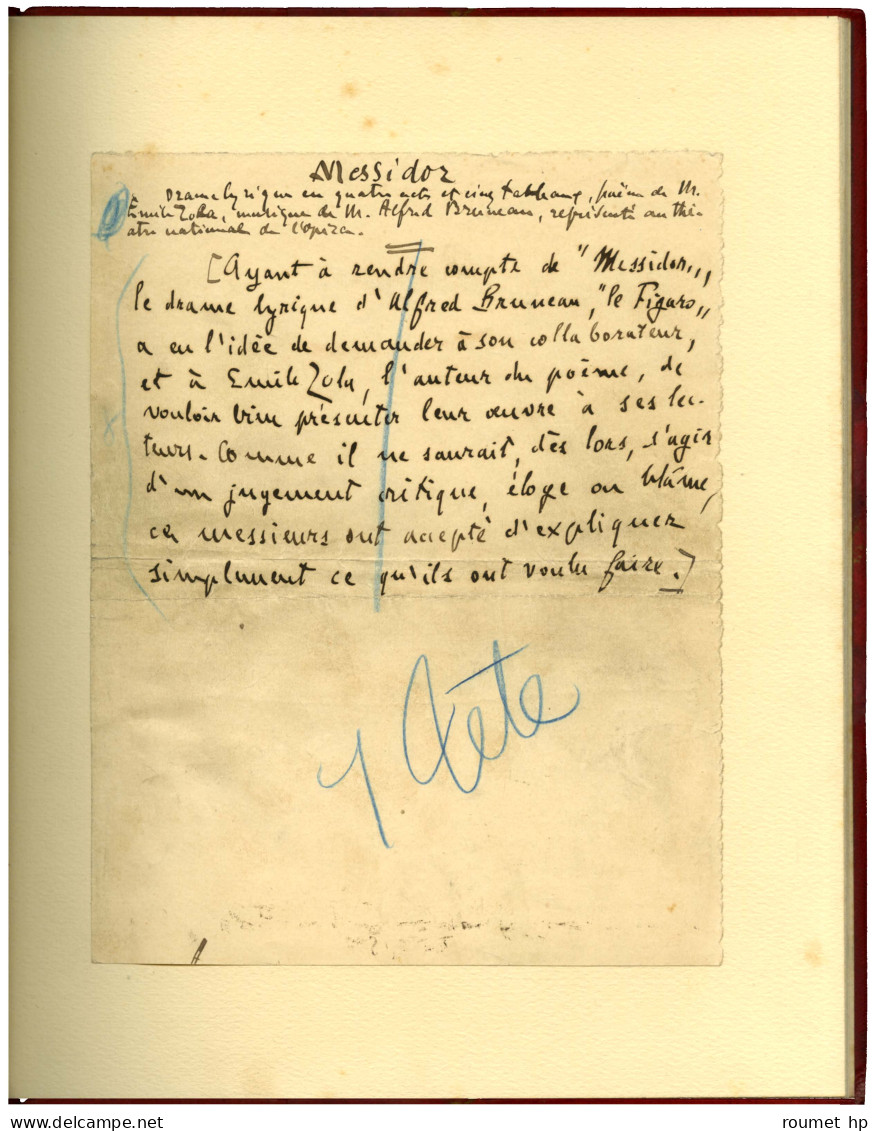 Messidor
Drame lyrique en quatre actes et cinq tableaux, poème de M.
Émile Zola, musique de M. Alfred Bruneau, représenté au thé-
atre national de l'Opéra.
[Ayant à rendre compte de "Messidor",
le drame lyrique d'Alfred Bruneau, "le Figaro"
a eu l'idée de demander à son collaborateur,
et à Emile Zola, l'auteur du poème, de
vouloir bien présenter leur œuvre à ses lec-
teurs. Comme il ne saurait, dès lors, s'agir
d'un jugement critique, éloge ou blâme,
ces messieurs ont accepté d'expliquer
simplement ce qu'ils ont voulu faire.]
1 tete
delcampe.net
roumet hp